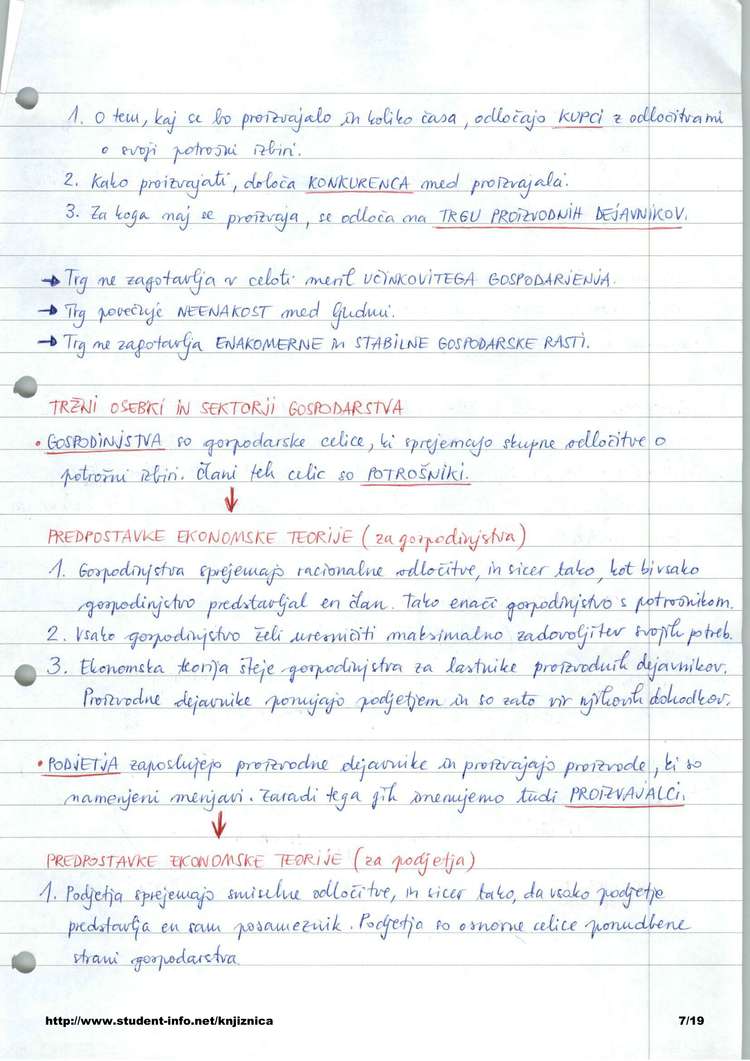 1. O tem, kaj se bo proizvajalo in koliko časa, odločajo KUPCI z odločitvami
o svoji potrošni izbiri.
2. Kako proizvajati, določa KONKURENCA med proizvajalci.
3. Za koga naj se proizvaja, se odloča na TRGU PROIZVODNIH DEJAVNIKOV.
→ Trg ne zagotavlja v celoti meril UČINKOVITEGA GOSPODARJENJA.
→ Trg povečuje NEENAKOST med ljudmi.
→ Trg ne zagotavlja ENAKOMERNE in STABILNE GOSPODARSKE RASTI.
TRŽNI OSEBKI IN SEKTORJI GOSPODARSTVA
• GOSPODINJSTVA so gospodarske celice, ki sprejemajo skupne odločitve o
potrošni izbiri. Člani teh celic so POTROŠNIKI.
↓
PREDPOSTAVKE EKONOMSKE TEORIJE (za gospodinjstva)
1. Gospodinjstva sprejemajo racionalne odločitve, in sicer tako, kot bi vsako
gospodinjstvo predstavljal en član. Tako enači gospodinjstvo s potrošnikom.
2. Vsako gospodinjstvo želi uresničiti maksimalno zadovoljitev svojih potreb.
3. Ekonomska teorija šteje gospodinjstva za lastnike proizvodnih dejavnikov.
Proizvodne dejavnike ponujajo podjetjem in so zato vir njihovih dohodkov.
• PODJETJA zaposlujejo proizvodne dejavnike in proizvajajo proizvode, ki so
namenjeni menjavi. Zaradi tega jih imenujemo tudi PROIZVAJALCI.
↓
PREDPOSTAVKE EKONOMSKE TEORIJE (za podjetja)
1. Podjetja sprejemajo smiselne odločitve, in sicer tako, da vsako podjetje
predstavlja en sam posameznik. Podjetja so osnovne celice ponudbene
strani gospodarstva.
http://www.student-info.net/knjiznica 7/19